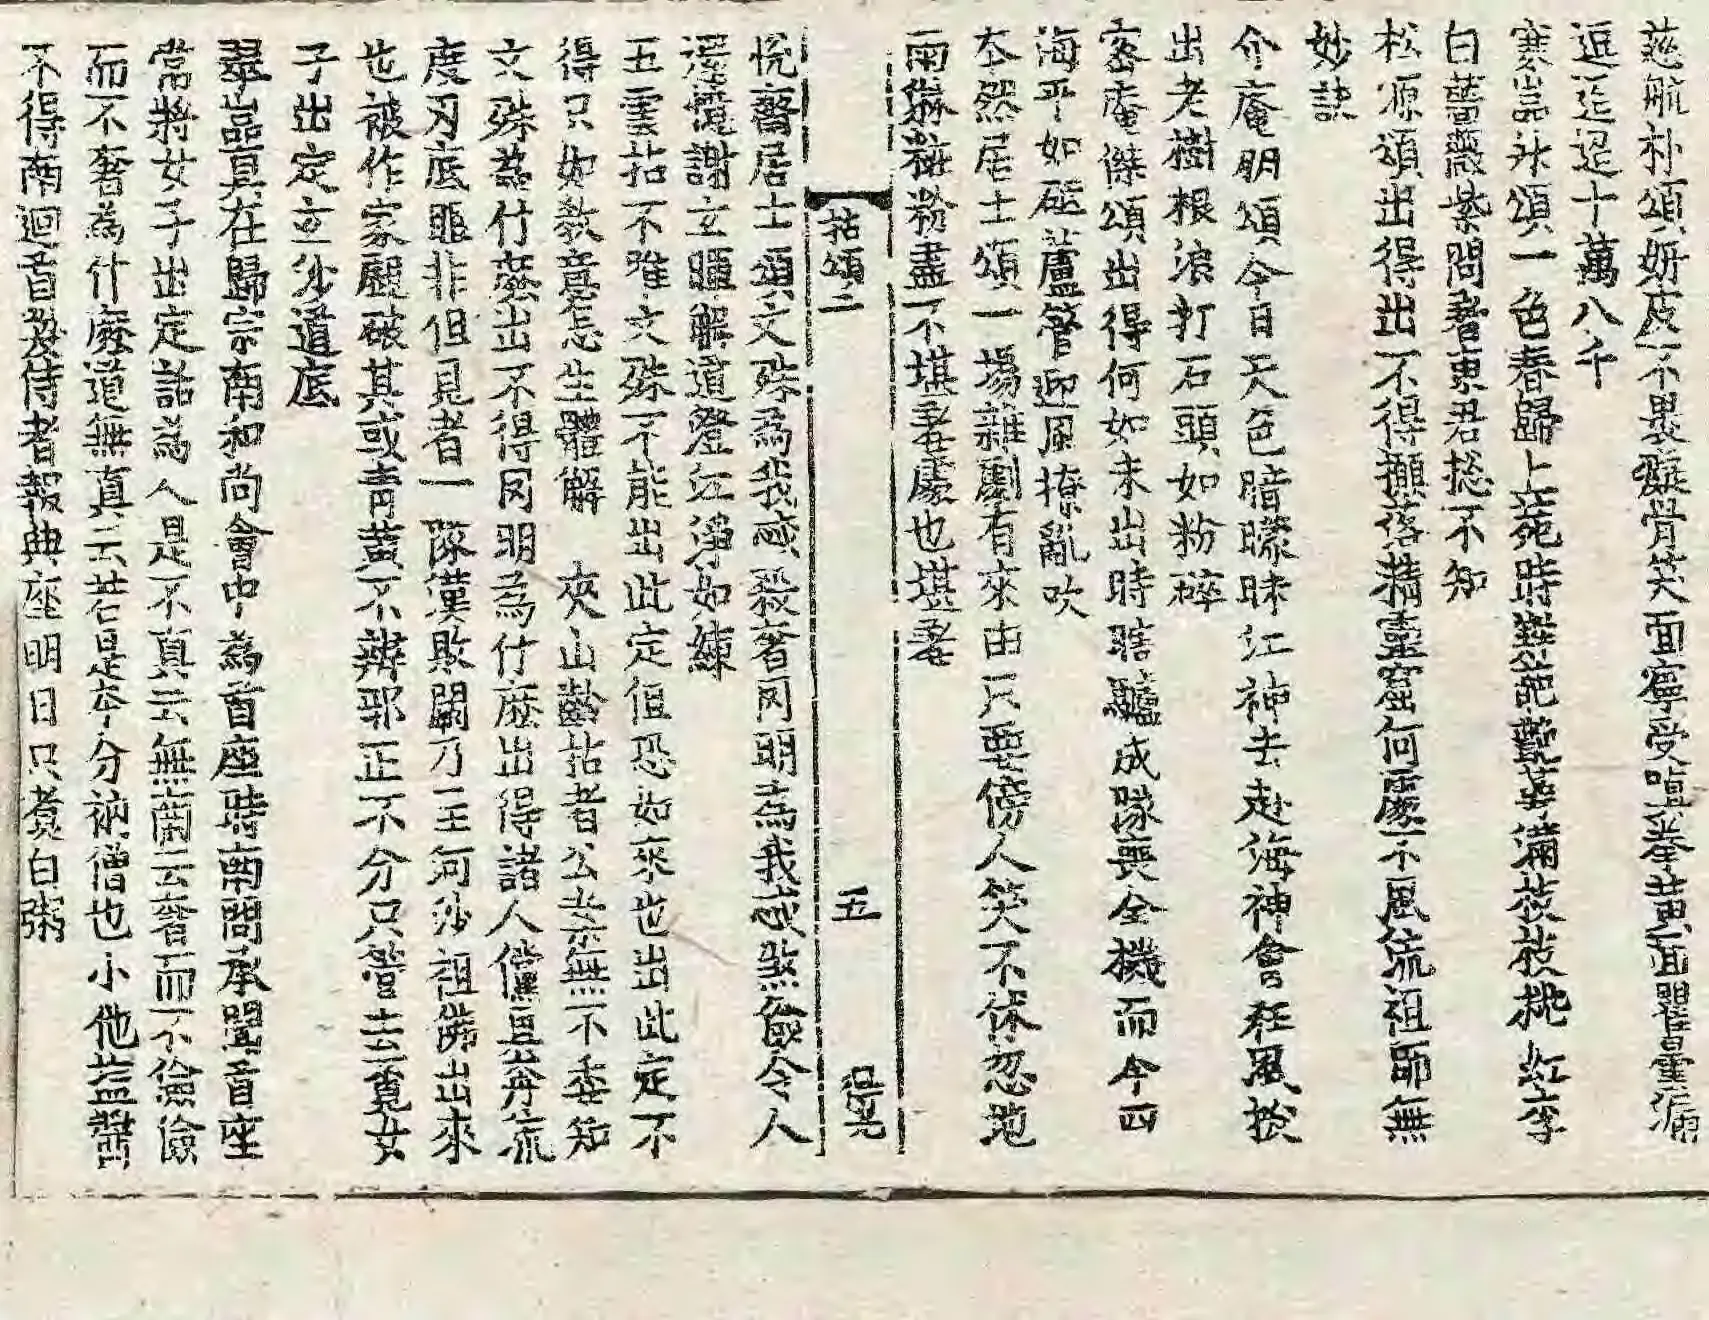 慈航朴頌妍皮不裹癡骨笑面寧受嗔拳黃面瞿曇漏
逗迢迢十萬八千
寒嵓永頌一色春歸上苑時群葩競萼滿枝枝桃紅李
白薔薇紫問著東君捴不知
松源頌出得出不得攧落精靈窟何處不風流祖師無
妙訣
介庵朋頌今日天色暗曚昧江神去赴海神會狂風拔
出老樹根浪打石頭如粉碎
密庵傑頌出得何如未出時瞎驢成隊喪全機而今四
海平如砥蘆管迎風撩亂吹
本然居士頌一場雜劇有來由只要傍人笑不休忽地
雨淋粧粉盡不堪羞處也堪羞
拈頌二　五
悅齋居士頌文殊爲我惑殺著罔明為我惑煞飜令人
還憶謝玄暉解道澄江淨如練
五雲拈不唯文殊不能出此定但恐如來也出此定不
得只如敎意怎生體解　夾山齡拈者公案無不委知
文殊為什麽出不得罔明為什麽出得諸人儻具奔流
度刃底眼非但見者一隊漢敗闕乃至河沙祖佛出來
也被作家覷破其或靑黃不辨邪正不分只管云云覓女
子出定立沙道底
翠嵓眞在歸宗南和尚會中為首座時南問承聞首座
常將女子出定話為人是不真云無南云奢而不儉儉
而不奢為什麽道無真云若是本分衲僧也小他塩醬
不得南迴首喚侍者報典座明日只煑白粥